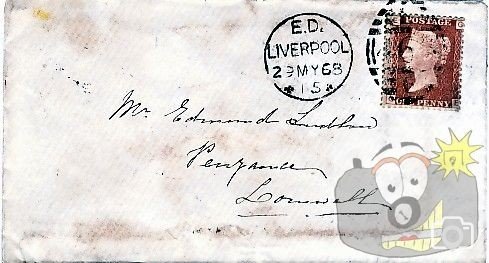 E.D.
LIVERPOOL
29 MY 68
15
POSTAGE
ONE PENNY
Mr Edmund
Penzance
Cornwall